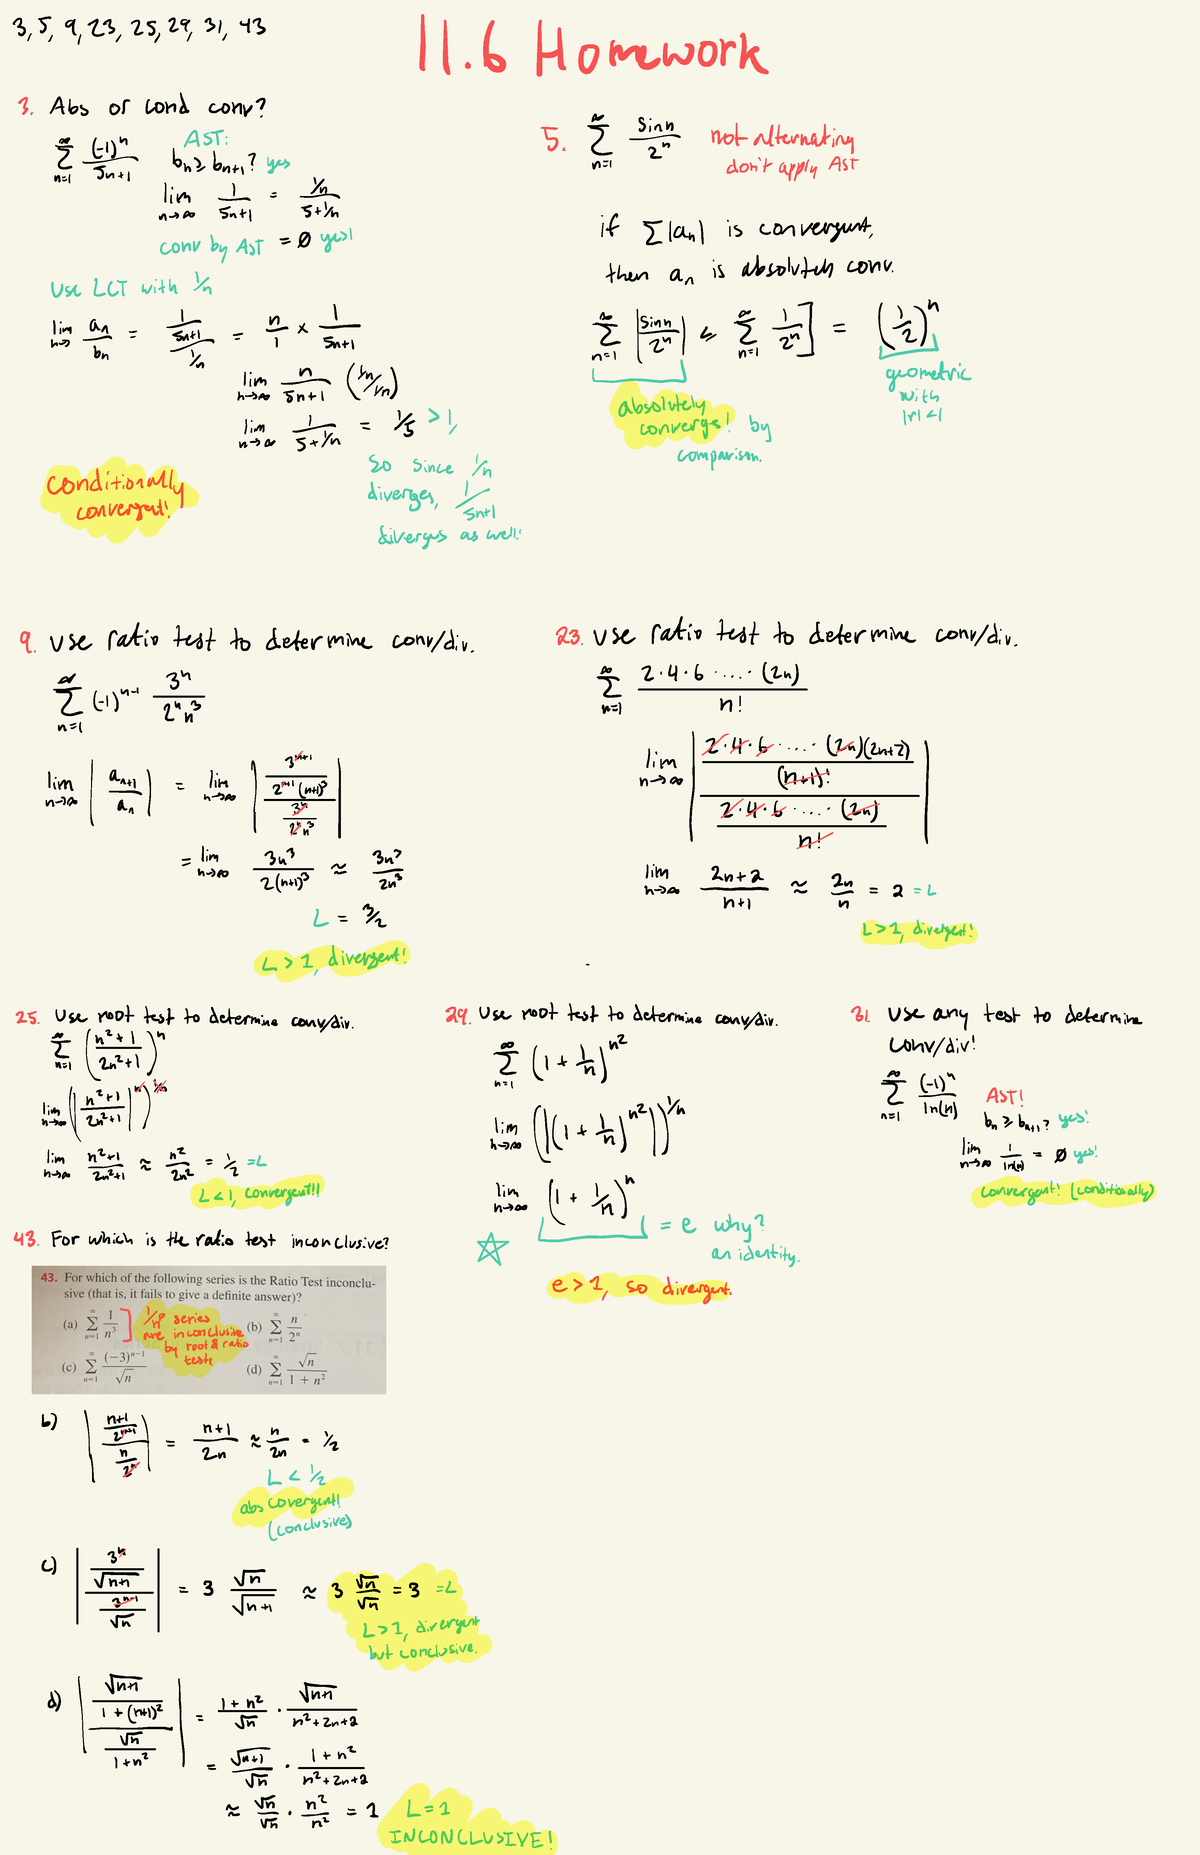 3, 5, 9, 23, 25, 29, 31, 43
11.6 Homework
3. Abs or cond conv?
∞ Σ n=1 (-1)ⁿ / 5n+1
AST:
bₙ ≥ bₙ₊₁? yes
lim n→∞ 1/(5n+1) = (1/n)/(5+1/n)
conv by AST = 0 yes!
Use LCT with 1/n
lim n→∞ aₙ/bₙ = (1/(5n+1))/(1/n) = n/1 × 1/(5n+1)
lim n→∞ n/(5n+1) ((1/n)/(1/n))
lim n→∞ 1/(5+1/n) = 1/5 > 1,
so since 1/n
diverges, 1/(5n+1)
diverges as well!
conditionally
convergent!
5. ∞ Σ n=1 sin n / 2ⁿ
not alternating
don't apply AST
if Σ|aₙ| is convergent,
then aₙ is absolutely conv.
∞ Σ n=1 |sin n / 2ⁿ| ≤ ∞ Σ n=1 1/2ⁿ ] = (1/2)ⁿ
geometric
with
|r| < 1
absolutely
converges! by
comparison.
9. Use ratio test to determine conv/div.
∞ Σ n=1 (-1)ⁿ⁻¹ 3ⁿ / 2ⁿn³
lim n→∞ |aₙ₊₁/aₙ| = lim n→∞ |(3ⁿ⁺¹ / 2ⁿ⁺¹(n+1)³) / (3ⁿ / 2ⁿn³)|
= lim n→∞ 3n³ / 2(n+1)³ ≈ 3n³ / 2n³
L = 3/2
L > 1, divergent!
23. Use ratio test to determine conv/div.
∞ Σ n=1 2·4·6·....·(2n) / n!
lim n→∞ |(2·4·6·....·(2n)(2n+2) / (n+1)!) / (2·4·6·....·(2n) / n!)|
lim n→∞ (2n+2)/(n+1) ≈ 2n/n = 2 = L
L > 1, divergent!
25. Use root test to determine conv/div.
∞ Σ n=1 ((n²+1)/(2n²+1))ⁿ
lim n→∞ (|(n²+1)/(2n²+1)|ⁿ)^(1/n)
lim n→∞ (n²+1)/(2n²+1) ≈ n²/2n² = 1/2 = L
L < 1, convergent!!
29. Use root test to determine conv/div.
∞ Σ n=1 (1 + 1/n)^(n²)
lim n→∞ (|(1 + 1/n)^(n²)|)^(1/n)
lim n→∞ (1 + 1/n)ⁿ
= e why?
an identity.
e > 1, so divergent.
31. Use any test to determine
conv/div!
∞ Σ n=1 (-1)ⁿ / ln(n)
AST!
bₙ ≥ bₙ₊₁? yes!
lim n→∞ 1/ln(n) = 0 yes!
convergent! (conditionally)
43. For which is the ratio test inconclusive?
43. For which of the following series is the Ratio Test inconclu-
sive (that is, it fails to give a definite answer)?
(a) ∞ Σ n=1 1/n³
1/nᵖ series
are inconclusive
by root & ratio
tests
(b) ∞ Σ n=1 n/2ⁿ
(c) ∞ Σ n=1 (−3)ⁿ⁻¹ / √n
(d) ∞ Σ n=1 √n / (1 + n²)
b) |((n+1)/2ⁿ⁺¹) / (n/2ⁿ)| = (n+1)/2n ≈ n/2n = 1/2
L < 1/2
abs covergent!
(conclusive)
c) |(3ⁿ/√n+1) / (3ⁿ⁻¹/√n)| = 3 √n/√n+1 ≈ 3 √n/√n = 3 = L
L > 1, divergent
but conclusive.
d) |(√n+1 / (1+(n+1)²)) / (√n / (1+n²))| = (1+n²)/√n · √n+1 / (n²+2n+2)
= √n+1/√n · (1+n²)/(n²+2n+2)
≈ √n/√n · n²/n² = 1
L = 1
INCONCLUSIVE!